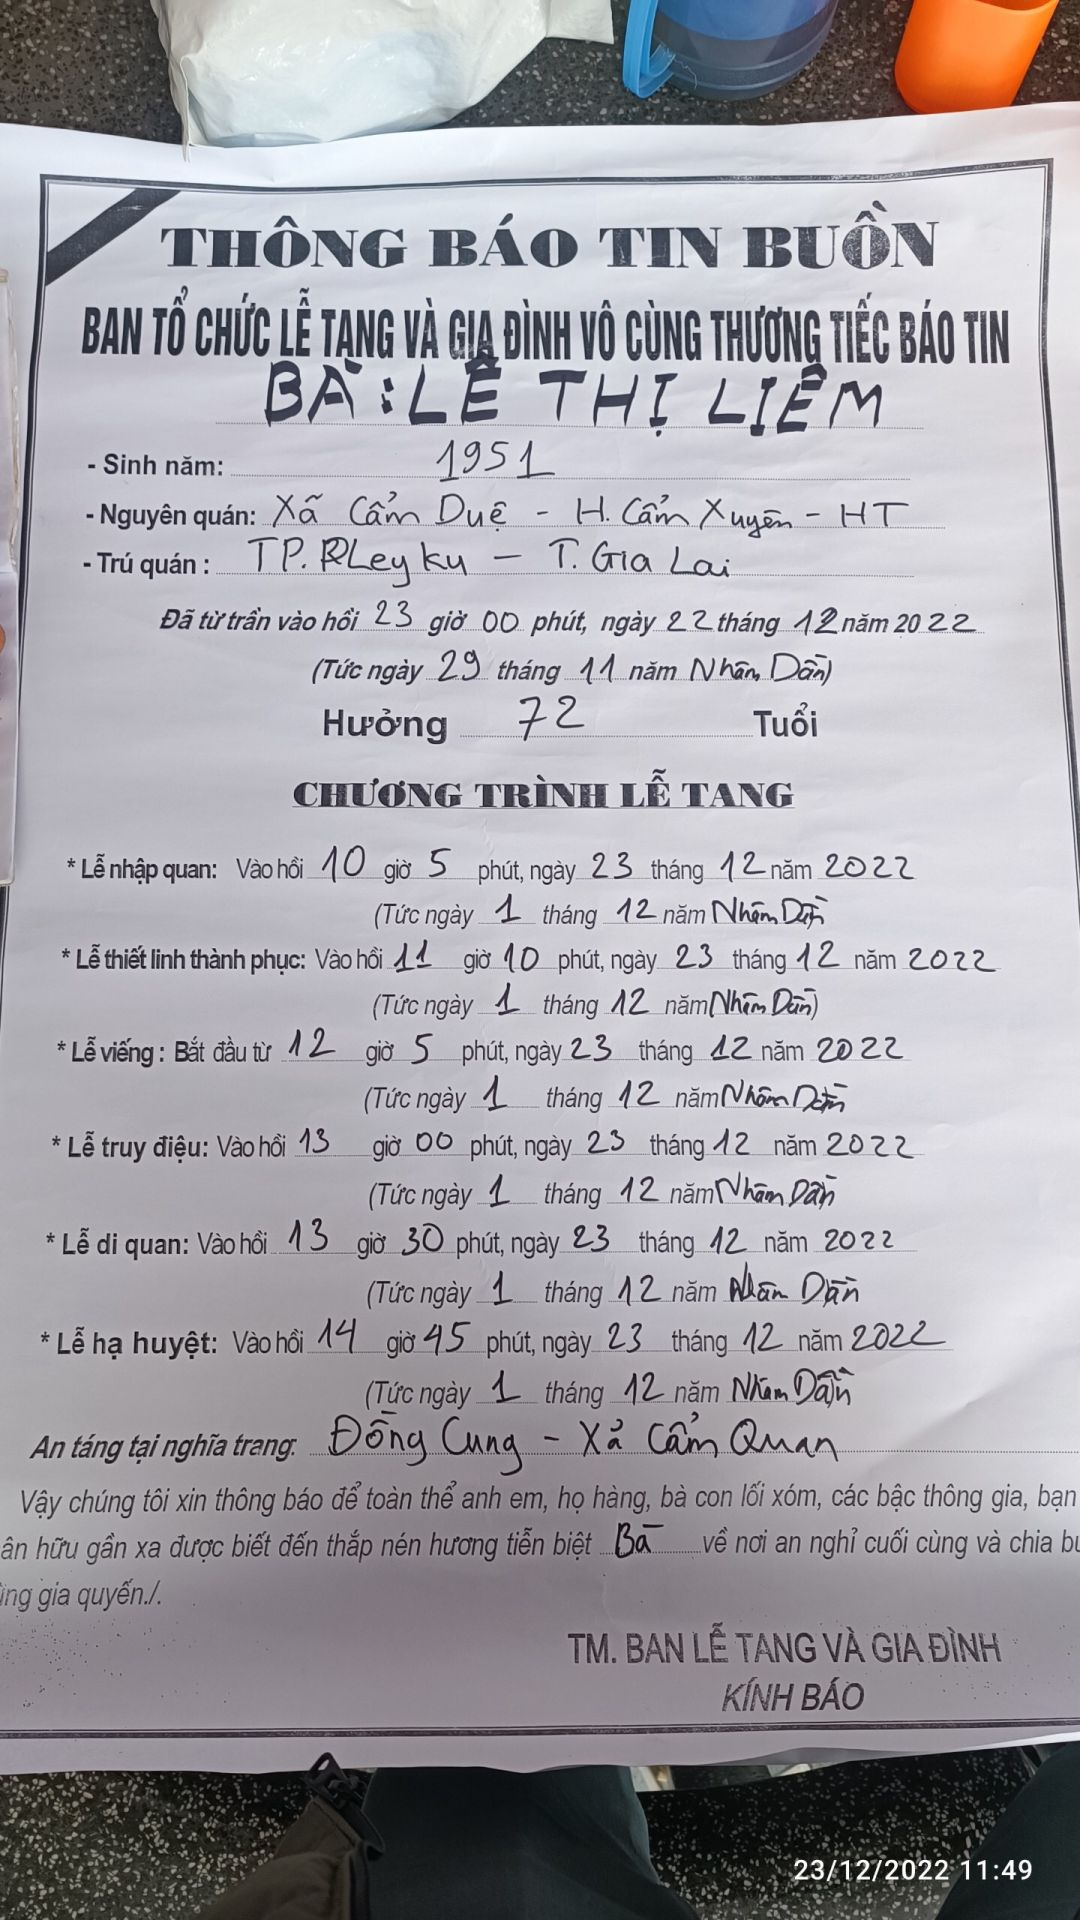 THÔNG BÁO TIN BUỒN
BAN TỔ CHỨC LỄ TANG VÀ GIA ĐÌNH VÔ CÙNG THƯƠNG TIẾC BÁO TIN
BÀ: LÊ THỊ LIÊM
- Sinh năm: 1951
- Nguyên quán: Xã Cẩm Duệ - H. Cẩm Xuyên - HT
- Trú quán: TP. PLeyku - T. Gia Lai
Đã từ trần vào hồi 23 giờ 00 phút, ngày 22 tháng 12 năm 2022
(Tức ngày 29 tháng 11 năm Nhâm Dần)
Hưởng 72 Tuổi
CHƯƠNG TRÌNH LỄ TANG
* Lễ nhập quan: Vào hồi 10 giờ 5 phút, ngày 23 tháng 12 năm 2022
(Tức ngày 1 tháng 12 năm Nhâm Dần
* Lễ thiết linh thành phục: Vào hồi 11 giờ 10 phút, ngày 23 tháng 12 năm 2022
(Tức ngày 1 tháng 12 năm Nhâm Dần)
* Lễ viếng: Bắt đầu từ 12 giờ 5 phút, ngày 23 tháng 12 năm 2022
(Tức ngày 1 tháng 12 năm Nhâm Dần
* Lễ truy điệu: Vào hồi 13 giờ 00 phút, ngày 23 tháng 12 năm 2022
(Tức ngày 1 tháng 12 năm Nhâm Dần
* Lễ di quan: Vào hồi 13 giờ 30 phút, ngày 23 tháng 12 năm 2022
(Tức ngày 1 tháng 12 năm Nhâm Dần
* Lễ hạ huyệt: Vào hồi 14 giờ 45 phút, ngày 23 tháng 12 năm 2022
(Tức ngày 1 tháng 12 năm Nhâm Dần
An táng tại nghĩa trang: Đồng Cung - Xả Cẩm Quan
Vậy chúng tôi xin thông báo để toàn thể anh em, họ hàng, bà con lối xóm, các bậc thông gia, bạn
ân hữu gần xa được biết đến thắp nén hương tiễn biệt Bà về nơi an nghỉ cuối cùng và chia bu
ùng gia quyến./.
TM. BAN LỄ TANG VÀ GIA ĐÌNH
KÍNH BÁO
23/12/2022 11:49